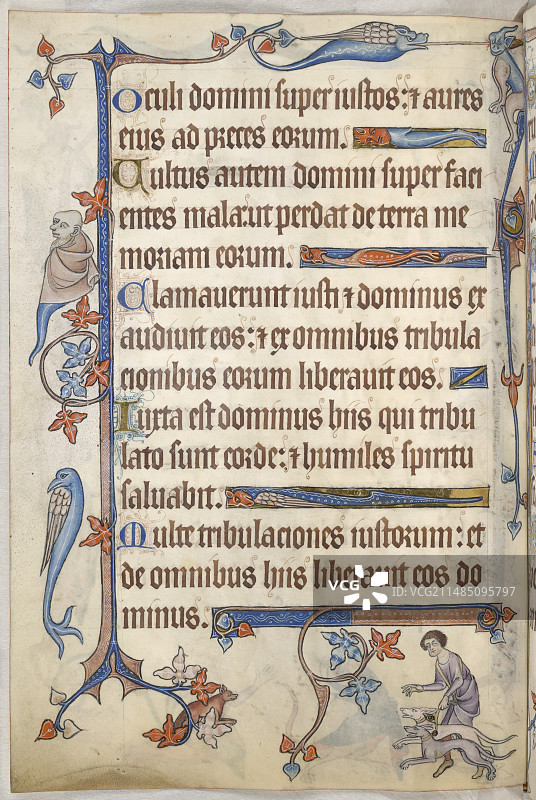 Oculi domini super iustos: ⁊ aures
eius ad preces eorum.
Uultus autem domini super faci
entes mala: ut perdat de terra me
moriam eorum.
Clamauerunt iusti ⁊ dominus ex
audiuit eos: ⁊ ex omnibus tribula
cionibus eorum liberauit eos.
Iuxta est dominus hiis qui tribu
lato sunt corde: ⁊ humiles spiritu
saluabit.
Multe tribulaciones iustorum: et
de omnibus hiis liberauit eos do
minus.
VCG
ID: VCG211485095797